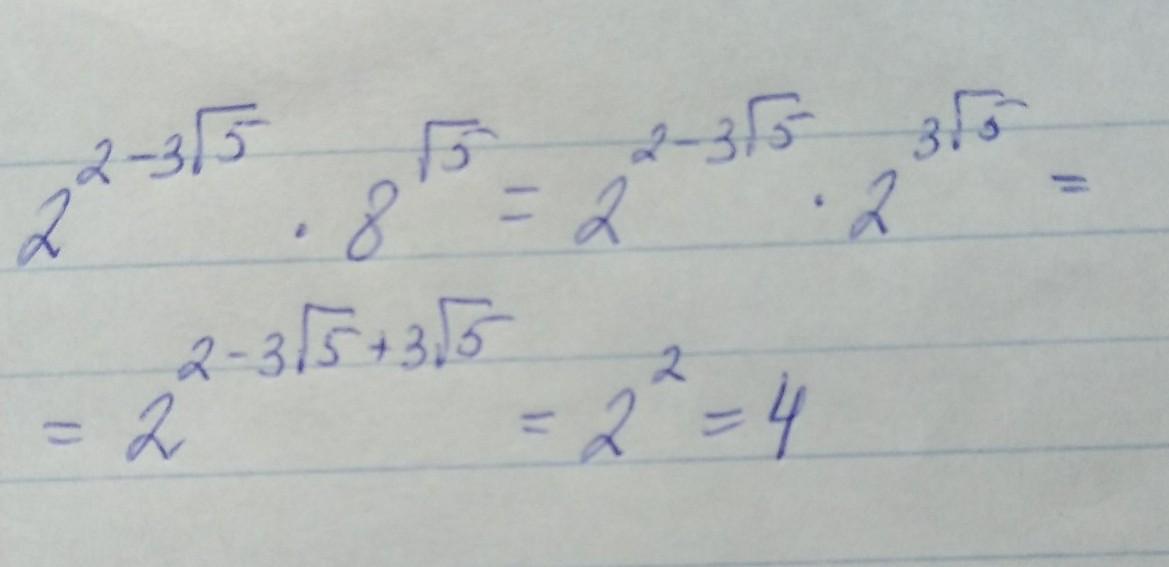 2^{2-3√5} · 8^{√5} = 2^{2-3√5} · 2^{3√5} =
= 2^{2-3√5+3√5} = 2^2 = 4